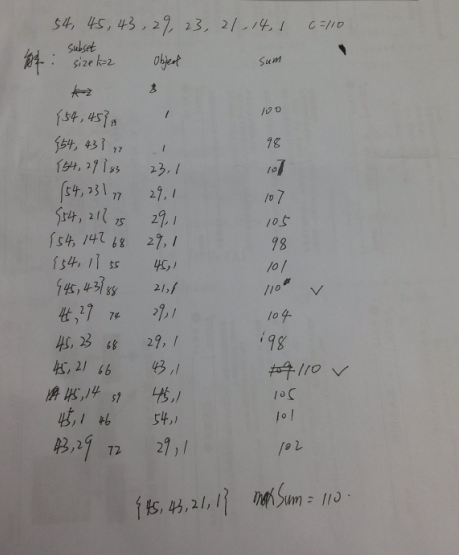 54, 45, 43, 29, 23, 21, 14, 1 C=110
解: subset size k=2 Object Sum
{54, 45} 99 1 100
{54, 43} 97 1 98
{54, 29} 83 23, 1 107
{54, 23} 77 29, 1 107
{54, 21} 75 29, 1 105
{54, 14} 68 29, 1 98
{54, 1} 55 45, 1 101
{45, 43} 88 21, 1 110 ✓
45, 29 74 29, 1 104
45, 23 68 29, 1 98
45, 21 66 43, 1 110 ✓
45, 14 59 45, 1 105
45, 1 46 54, 1 101
43, 29 72 29, 1 102
{45, 43, 21, 1} max Sum = 110.